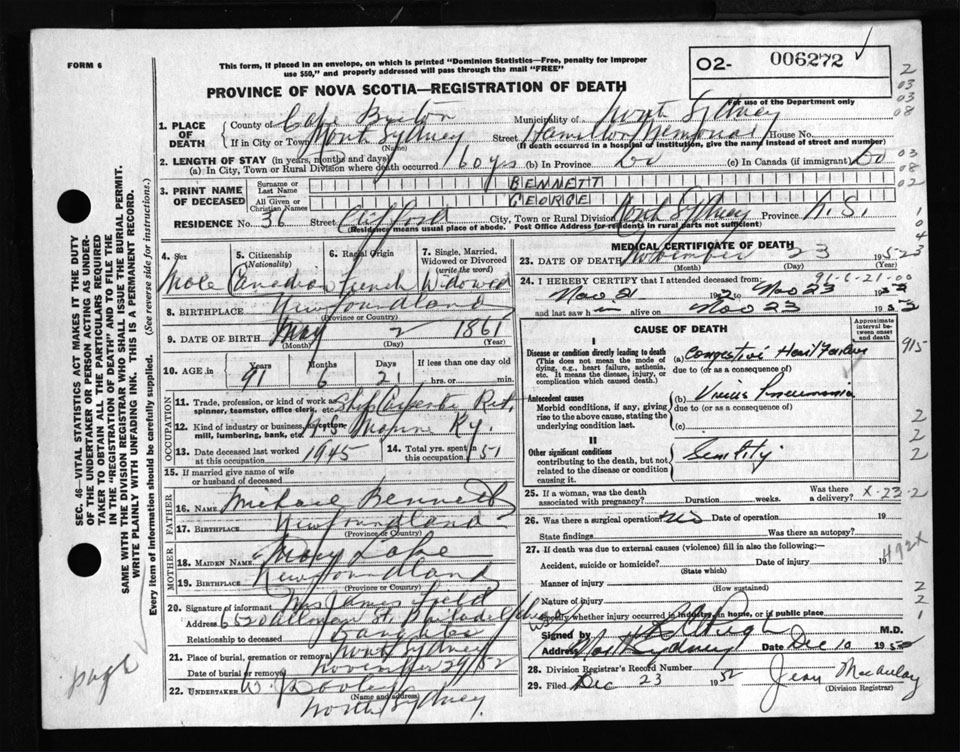 FORM 6
This form, if placed in an envelope, on which is printed "Dominion Statistics—Free, penalty for improper
use $50," and properly addressed will pass through the mail "FREE"
O2- 006272
For use of the Department only
PROVINCE OF NOVA SCOTIA—REGISTRATION OF DEATH
1. PLACE OF DEATH
County of Cape Breton Municipality of North Sydney
If in City or Town North Sydney (Name) Street Hamilton Memorial House No.
(If death occurred in a hospital or institution, give the name instead of street and number)
2. LENGTH OF STAY (in years, months and days)
(a) In City, Town or Rural Division where death occurred 60 yrs (b) In Province Do (c) In Canada (if immigrant) Do
3. PRINT NAME OF DECEASED
Surname or Last Name BENNETT
All Given or Christian Names GEORGE
RESIDENCE No. 36 Street Clifford City, Town or Rural Division North Sydney Province N.S.
(Residence means usual place of abode. Post Office Address for residents in rural parts not sufficient)
4. Sex
Male
5. Citizenship (Nationality)
Canadian
6. Racial Origin
French
7. Single, Married, Widowed or Divorced (write the word)
Widowed
8. BIRTHPLACE Newfoundland
(Province or Country)
9. DATE OF BIRTH May 2 1861
(Month) (Day) (Year)
10. AGE in Years 91 Months 6 Days 21 If less than one day old hrs. or min.
OCCUPATION
11. Trade, profession or kind of work as spinner, teamster, office clerk, etc. Ship Carpenter Ret.
12. Kind of industry or business, as cotton mill, lumbering, bank, etc. Marine Ry.
13. Date deceased last worked at this occupation 1945
14. Total yrs. spent in this occupation 51
15. If married give name of wife or husband of deceased
FATHER
16. NAME Michael Bennett
17. BIRTHPLACE Newfoundland
(Province or Country)
MOTHER
18. MAIDEN NAME Mary Lake
19. BIRTHPLACE Newfoundland
(Province or Country)
20. Signature of informant Mrs James
Address St. Philadelphia
Relationship to deceased Daughter
21. Place of burial, cremation or removal North Sydney
Date of burial or removal November 29/52
22. UNDERTAKER W. J. Dooley
(Name and address)
North Sydney.
MEDICAL CERTIFICATE OF DEATH
23. DATE OF DEATH November 23 1952
(Month) (Day)
24. I HEREBY CERTIFY that I attended deceased from: 91-6-21-00
Nov 21 1952 Nov 23 1952
and last saw him alive on Nov 23 1952
CAUSE OF DEATH
Approximate interval between onset and death
I
Disease or condition directly leading to death
(This does not mean the mode of dying, e.g., heart failure, asthenia, etc. It means the disease, injury, or complication which caused death.)
(a) Congestive Heart Failure
due to (or as a consequence of)
Antecedent causes
Morbid conditions, if any, giving rise to the above cause, stating the underlying condition last.
(b) Virus Pneumonia
due to (or as a consequence of)
(c)
II
Other significant conditions contributing to the death, but not related to the disease or condition causing it.
Senility
25. If a woman, was the death associated with pregnancy? Duration weeks. Was there a delivery? X-23-2
26. Was there a surgical operation? No Date of operation 19
State findings Was there an autopsy?
27. If death was due to external causes (violence) fill in also the following:— 492X
Accident, suicide or homicide? (State which) Date of injury 19
Manner of injury (How sustained)
Nature of injury
Specify whether injury occurred in industry, in home, or in public place
Signed by M.D.
Address North Sydney Date Dec 10 1952
28. Division Registrar's Record Number
29. Filed Dec 23 1952 Jean Macaulay
(Division Registrar)
SEC. 46—VITAL STATISTICS ACT MAKES IT THE DUTY
OF THE UNDERTAKER OR PERSON ACTING AS UNDER-
TAKER TO OBTAIN ALL THE PARTICULARS REQUIRED
IN THE "REGISTRATION OF DEATH" AND TO FILE THE
SAME WITH THE DIVISION REGISTRAR WHO SHALL ISSUE THE BURIAL PERMIT.
WRITE PLAINLY WITH UNFADING INK. THIS IS A PERMANENT RECORD.
Every item of information should be carefully supplied. (See reverse side for instructions.)
2
03
03
08
03
08
02
1
0
4
5-23
915
2
2
2
2
2
1